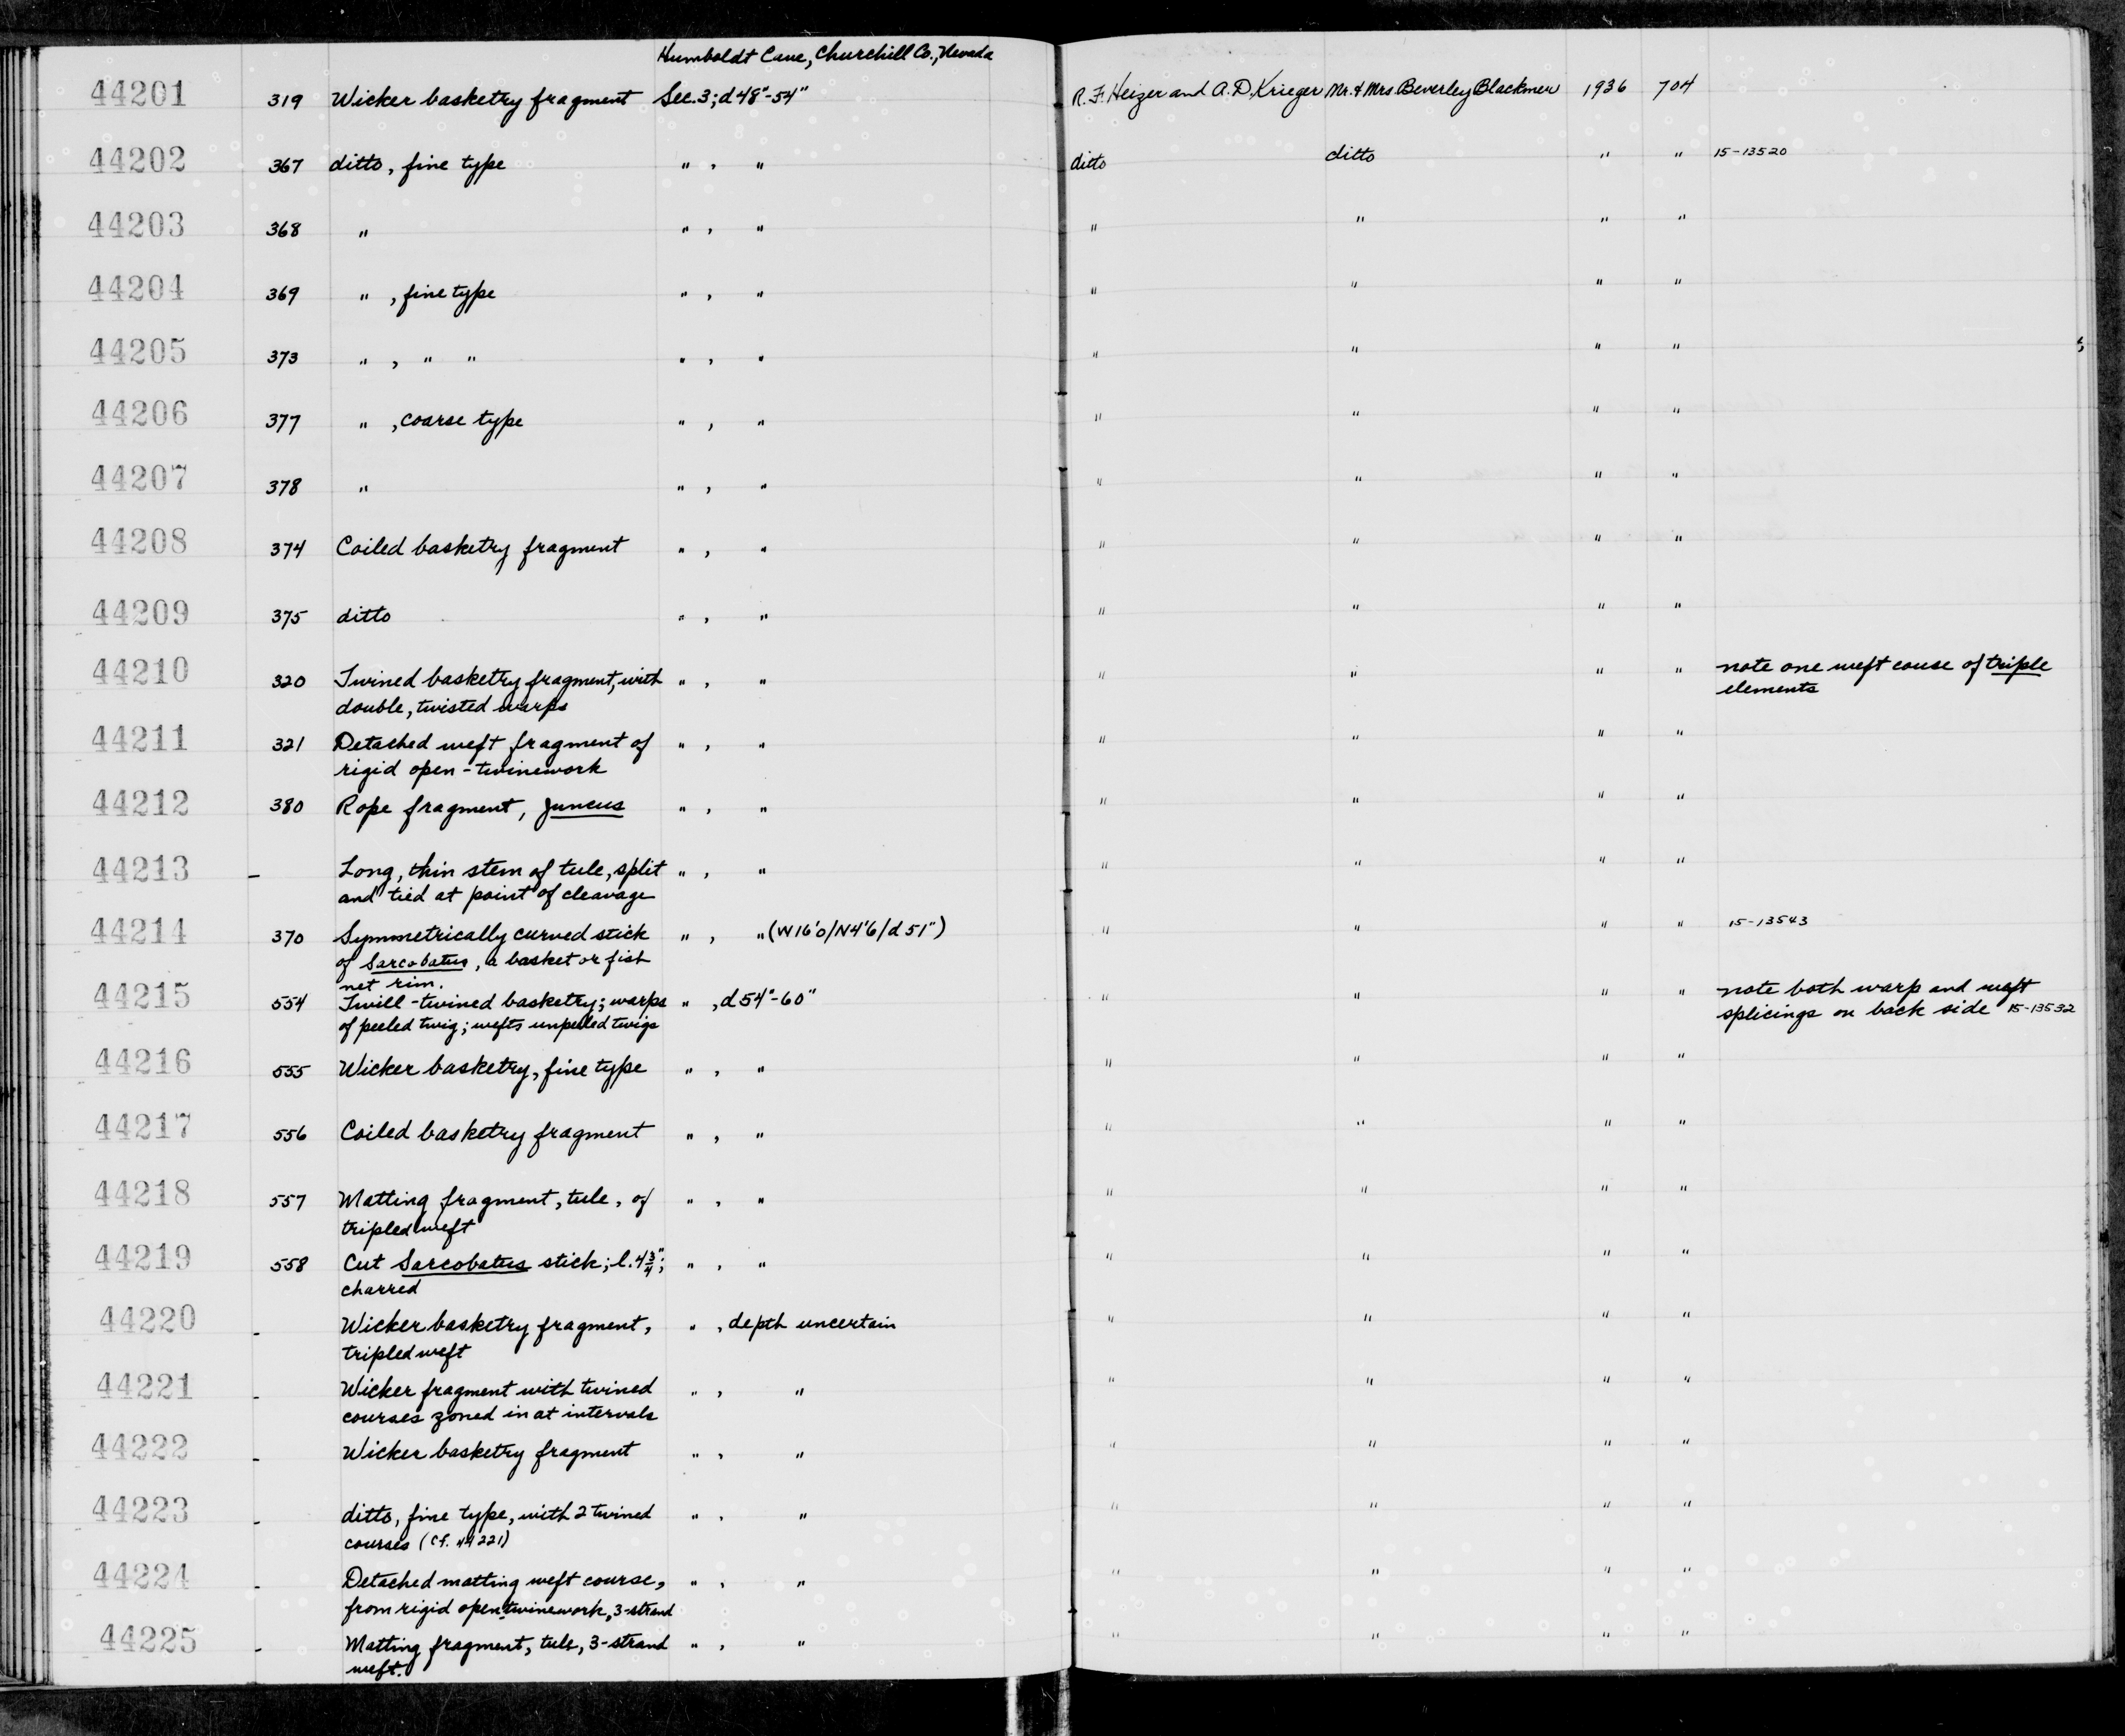 Humboldt Cave, Churchill Co., Nevada
44201 319 Wicker basketry fragment Sec. 3; d 48"-54" R. F. Heizer and A. D. Krieger Mr. & Mrs. Beverley Blackmer 1936 704
44202 367 ditto, fine type " , " ditto ditto " " 15-13520
44203 368 " " , " " " " "
44204 369 " , fine type " , " " " " "
44205 373 " , " " " , " " " " "
44206 377 " , coarse type " , " " " " "
44207 378 " " , " " " " "
44208 374 Coiled basketry fragment " , " " " " "
44209 375 ditto " , " " " " "
44210 320 Twined basketry fragment, with " , " " " " " note one weft couse of triple
double, twisted warps elements
44211 321 Detached weft fragment of " , " " " " "
rigid open-twinework
44212 380 Rope fragment, Juncus " , " " " " "
44213 - Long, thin stem of tule, split " , " " " " "
and tied at point of cleavage
44214 370 Symmetrically curved stick " , " (W16'0/N4'6/d 51") " " " " 15-13543
of Sarcobatus, a basket or fish
net rim.
44215 554 Twill-twined basketry; warps " , d 54"-60" " " " " note both warp and weft
of peeled twig; wefts unpeeled twigs splicings on back side 15-13532
44216 555 Wicker basketry, fine type " , " " " " "
44217 556 Coiled basketry fragment " , " " " " "
44218 557 Matting fragment, tule, of " , " " " " "
tripled weft
44219 558 Cut Sarcobatus stick; l. 4 3/4"; " , " " " " "
charred
44220 - Wicker basketry fragment, " , depth uncertain " " " "
tripled weft
44221 - Wicker fragment with twined " , " " " " "
courses zoned in at intervals
44222 - Wicker basketry fragment " , " " " " "
44223 - ditto, fine type, with 2 twined " , " " " " "
courses (cf. 44221)
44224 - Detached matting weft course, " , " " " " "
from rigid open twinework, 3-strand
44225 - Matting fragment, tule, 3-strand " , " " " " "
weft.